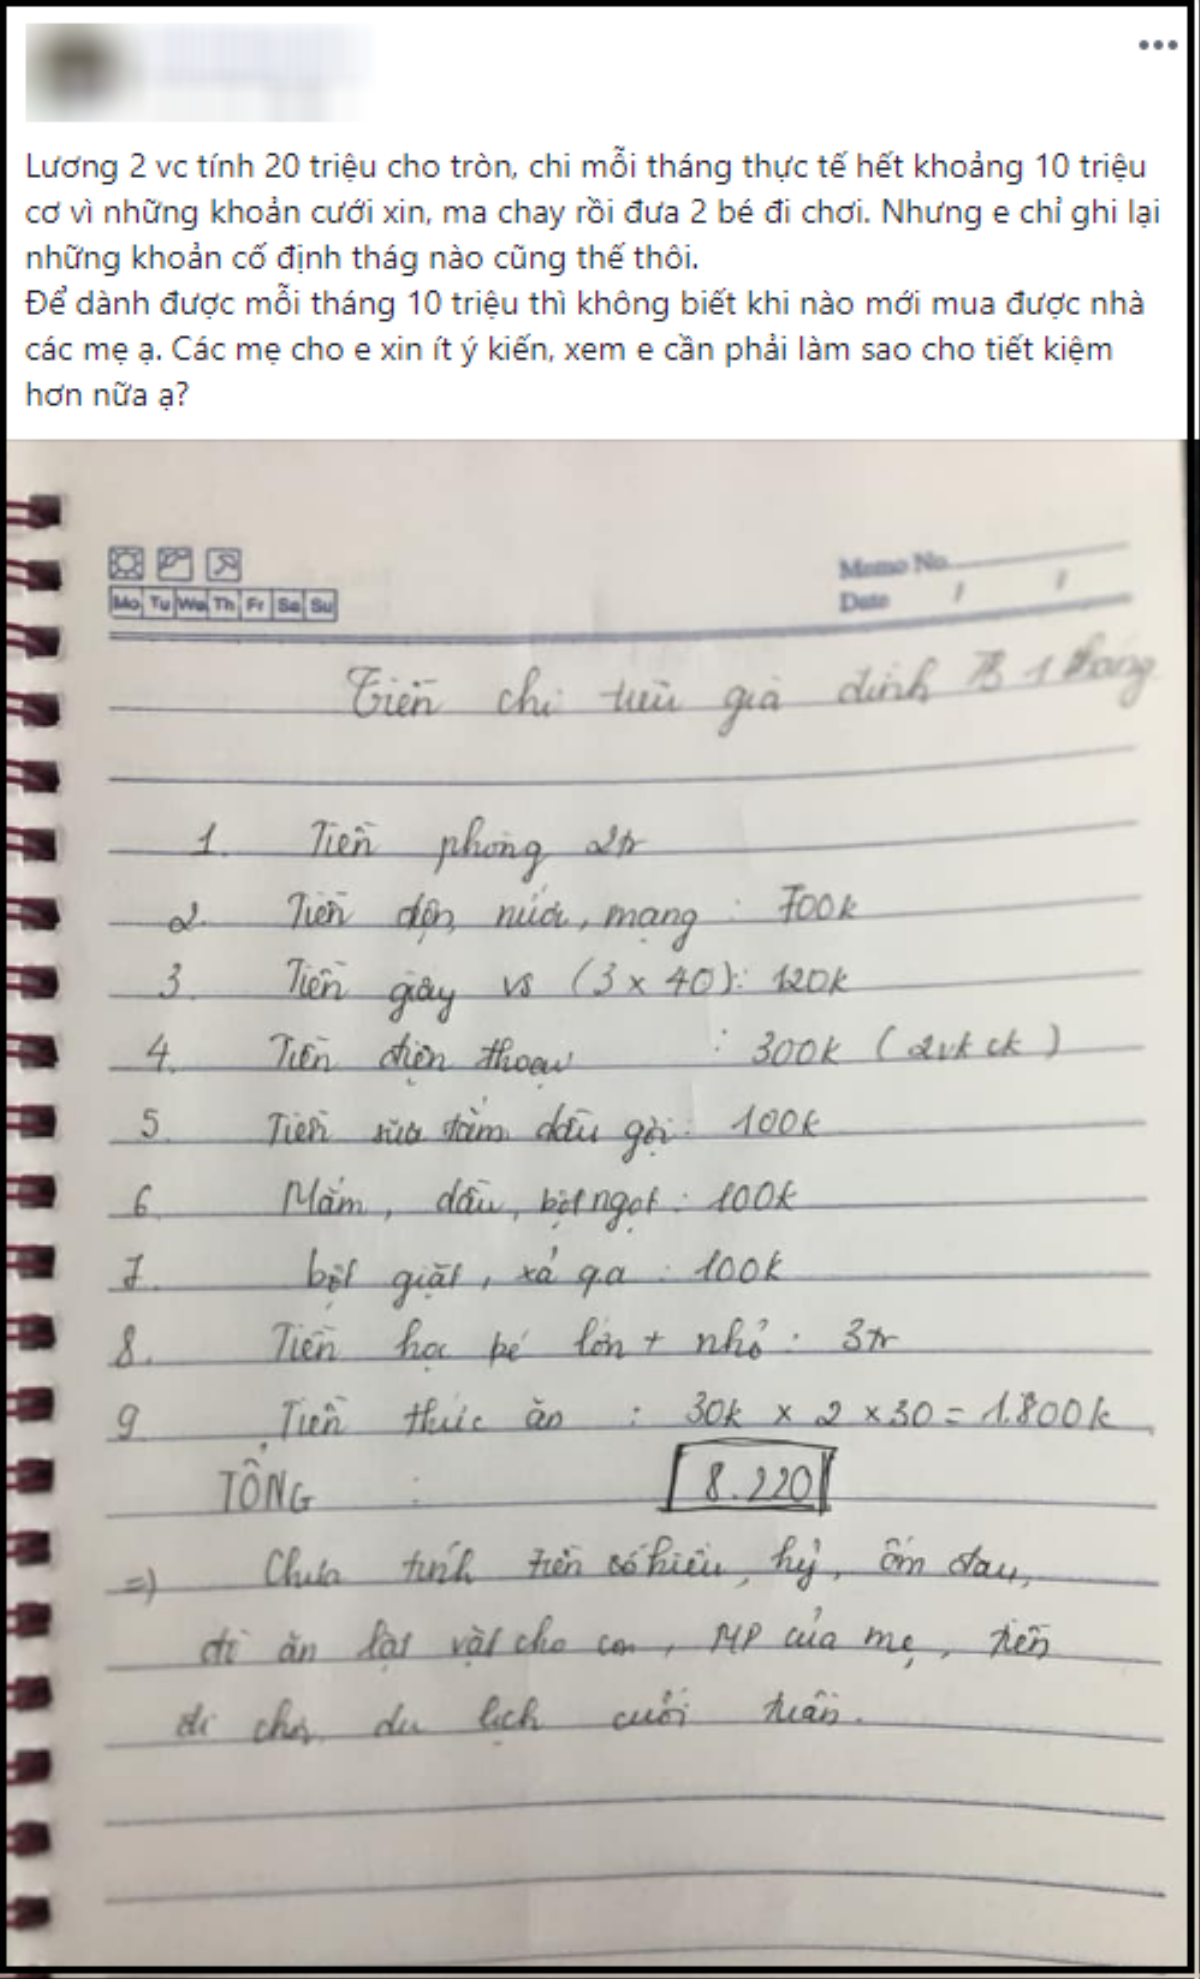 Lương 2 vc tính 20 triệu cho tròn, chi mỗi tháng thực tế hết khoảng 10 triệu
cơ vì những khoản cưới xin, ma chay rồi đưa 2 bé đi chơi. Nhưng e chỉ ghi lại
những khoản cố định thág nào cũng thế thôi.
Để dành được mỗi tháng 10 triệu thì không biết khi nào mới mua được nhà
các mẹ ạ. Các mẹ cho e xin ít ý kiến, xem e cần phải làm sao cho tiết kiệm
hơn nữa ạ?
Memo No.
Mo Tu We Th Fr Sa Su
Date / /
Tiền chi tiêu gia đình 1 tháng
1. Tiền phòng 2tr
2. Tiền điện, nước, mạng : 700k
3. Tiền giấy vs (3 x 40): 120k
4. Tiền điện thoại : 300k (2vk ck)
5. Tiền sữa tắm dầu gội: 100k
6. Mắm, dầu, bột ngọt: 100k
7. bột giặt, xả q.a : 100k
8. Tiền học bé lớn + nhỏ : 3tr
9. Tiền thức ăn : 30k x 2 x 30 = 1.800k
TỔNG : 8.220
=) Chưa tính tiền có hiếu, hỷ, ốm đau,
đi ăn lặt vặt cho con, MP của mẹ, tiền
đi chơi, du lịch cuối tuần.